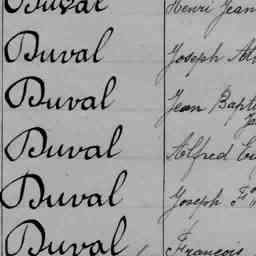 Duval Henri Jean
Duval Joseph
Duval Jean
Duval Alfred
Duval Joseph
Duval François